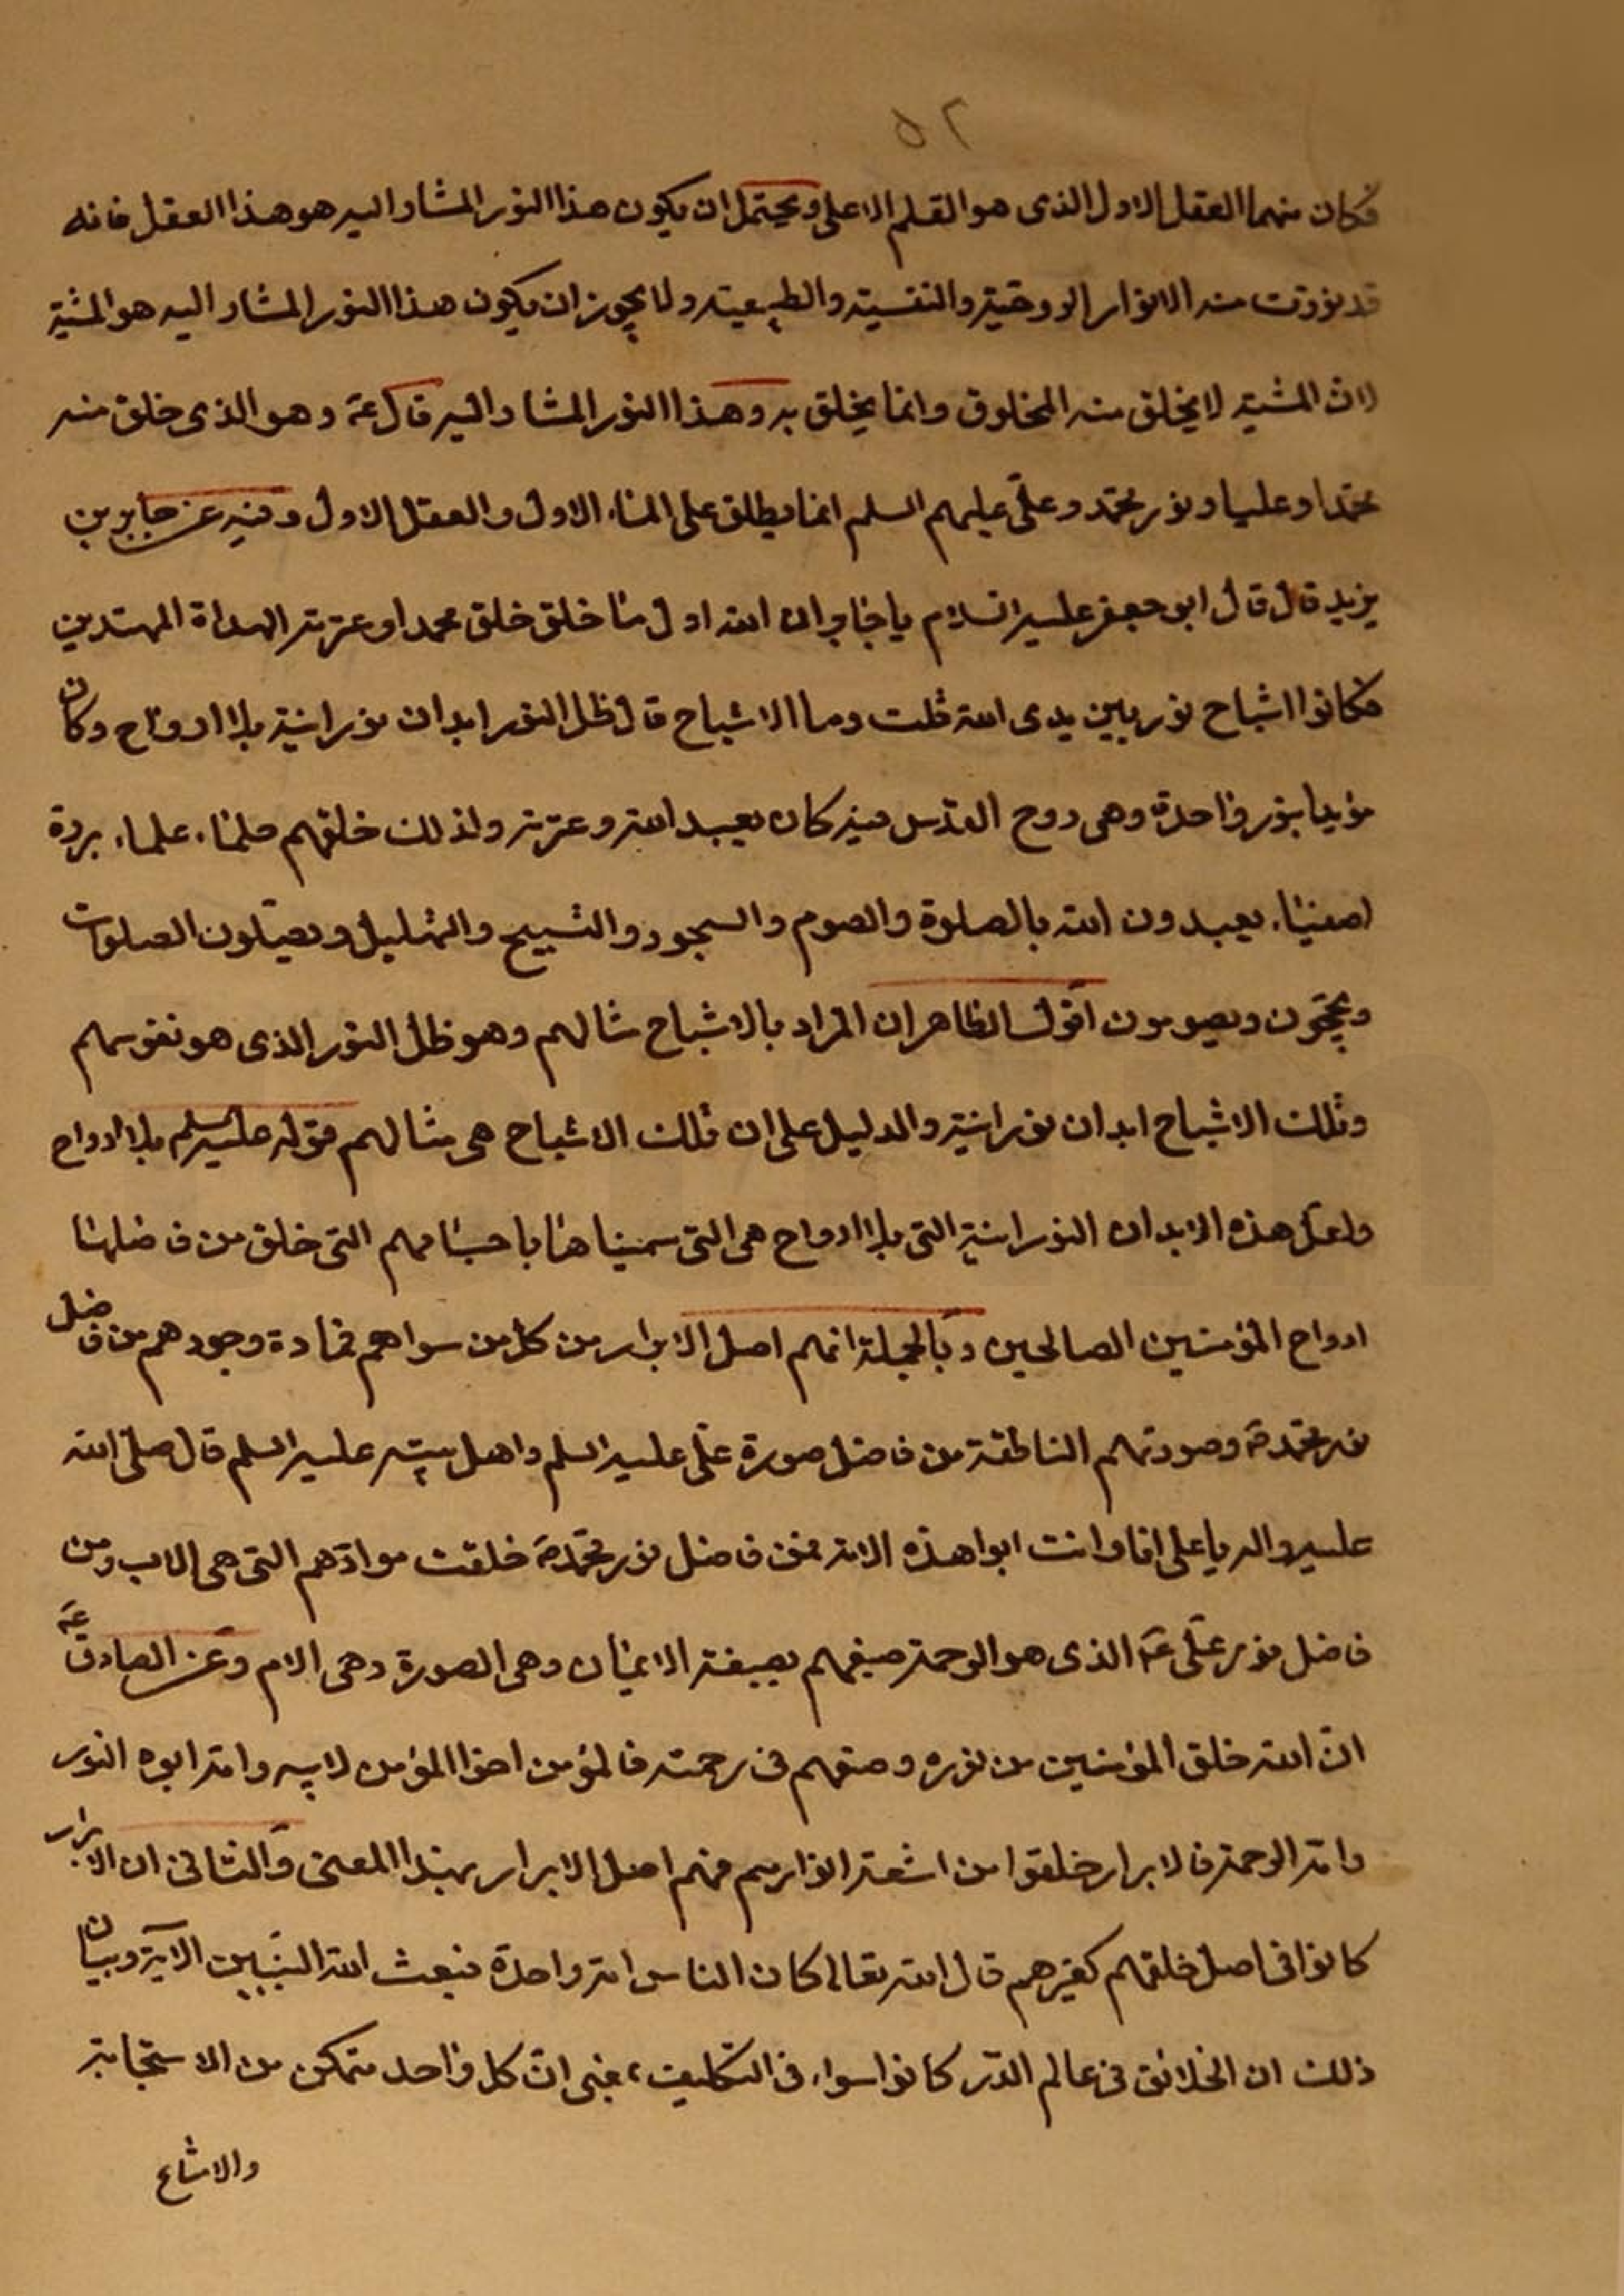 ٥٢
فكان منهما العقل الاول الذى هو القلم الاعلى ويحتمل ان يكون هذا النور المشار اليه هو هذا العقل فانه
قد نورت منه الانوار الروحية والنفسية والطبيعية ولا يجوز ان يكون هذا النور المشار اليه هو المشية
لان المشية لا يخلق منه المخلوق وانما يخلق به وهذا النور المشار اليه قال عَ وهو الذى خلق منه
محمّدا وعليا ونور محمّد وعلّى عليهم السلم انما يطلق على الماء الاول والعقل الاول وفيه عن جابر بن
يزيد قال قال ابو جعفر عليه السلام يا جابر ان الله اول ما خلق خلق محمدا وعترته الهداة المهتدين
فكانوا اشباح نور بين يدى الله قلت وما الاشباح قال ظل النور ابدان نورانية بلا ارواح وكان
مؤيدا بنور واحدة وهى روح القدس فبه كان يعبد الله وعترته ولذلك خلقهم حلماء علماء بررة
اصفياء يعبدون الله بالصلوة والصوم والسجود والتسبيح والتهليل ويصلّون الصلوات
ويحجّون ويصومون اقول الظاهر ان المراد بالاشباح مثالهم وهو ظل النور الذى هو نفوسهم
وتلك الاشباح ابدان نورانية والدليل على ان تلك الاشباح هى مثالهم قوله عليه السلم بلا ارواح
ولعل هذه الابدان النورانية التى بلا ارواح هى التى سميناها باجسامهم التى خلق من فاضلها
ارواح المؤمنين الصالحين وبالجملة انهم اصل الابرار من كل من سواهم فمادة وجودهم من فاضل
نور محمّد صَ وصورتهم الناطقة من فاضل صورة علّى عليه السلم واهل بيته عليه السلم قال صلّى الله
عليه واله يا على انا وانت ابوا هذه الامة فمن فاضل نور محمّد صَ خلقت موادّهم التى هى الاب ومن
فاضل نور علّى عَ الذى هو الرحمة صبغهم بصبغة الايمان وهى الصورة وهى الام وعن الصادق عَ
انّ الله خلق المؤمنين من نوره وصبغهم فى رحمته فالمؤمن اخوا المؤمن لابيه وامّه ابوه النور
وامّه الرحمة فالابرار خلقوا من اشعة انوارهم فهم اصل الابرار بهذا المعنى والثانى ان الابرار
كانوا فى اصل خلقهم كغيرهم قال الله تعالى كان الناس امّة واحدة فبعث الله النبّيين الآية وبيان
ذلك ان الخلائق فى عالم الذّر كانوا سواء فى التكليف يعنى انّ كل واحد متمكن من الاستجابة
والامتناع